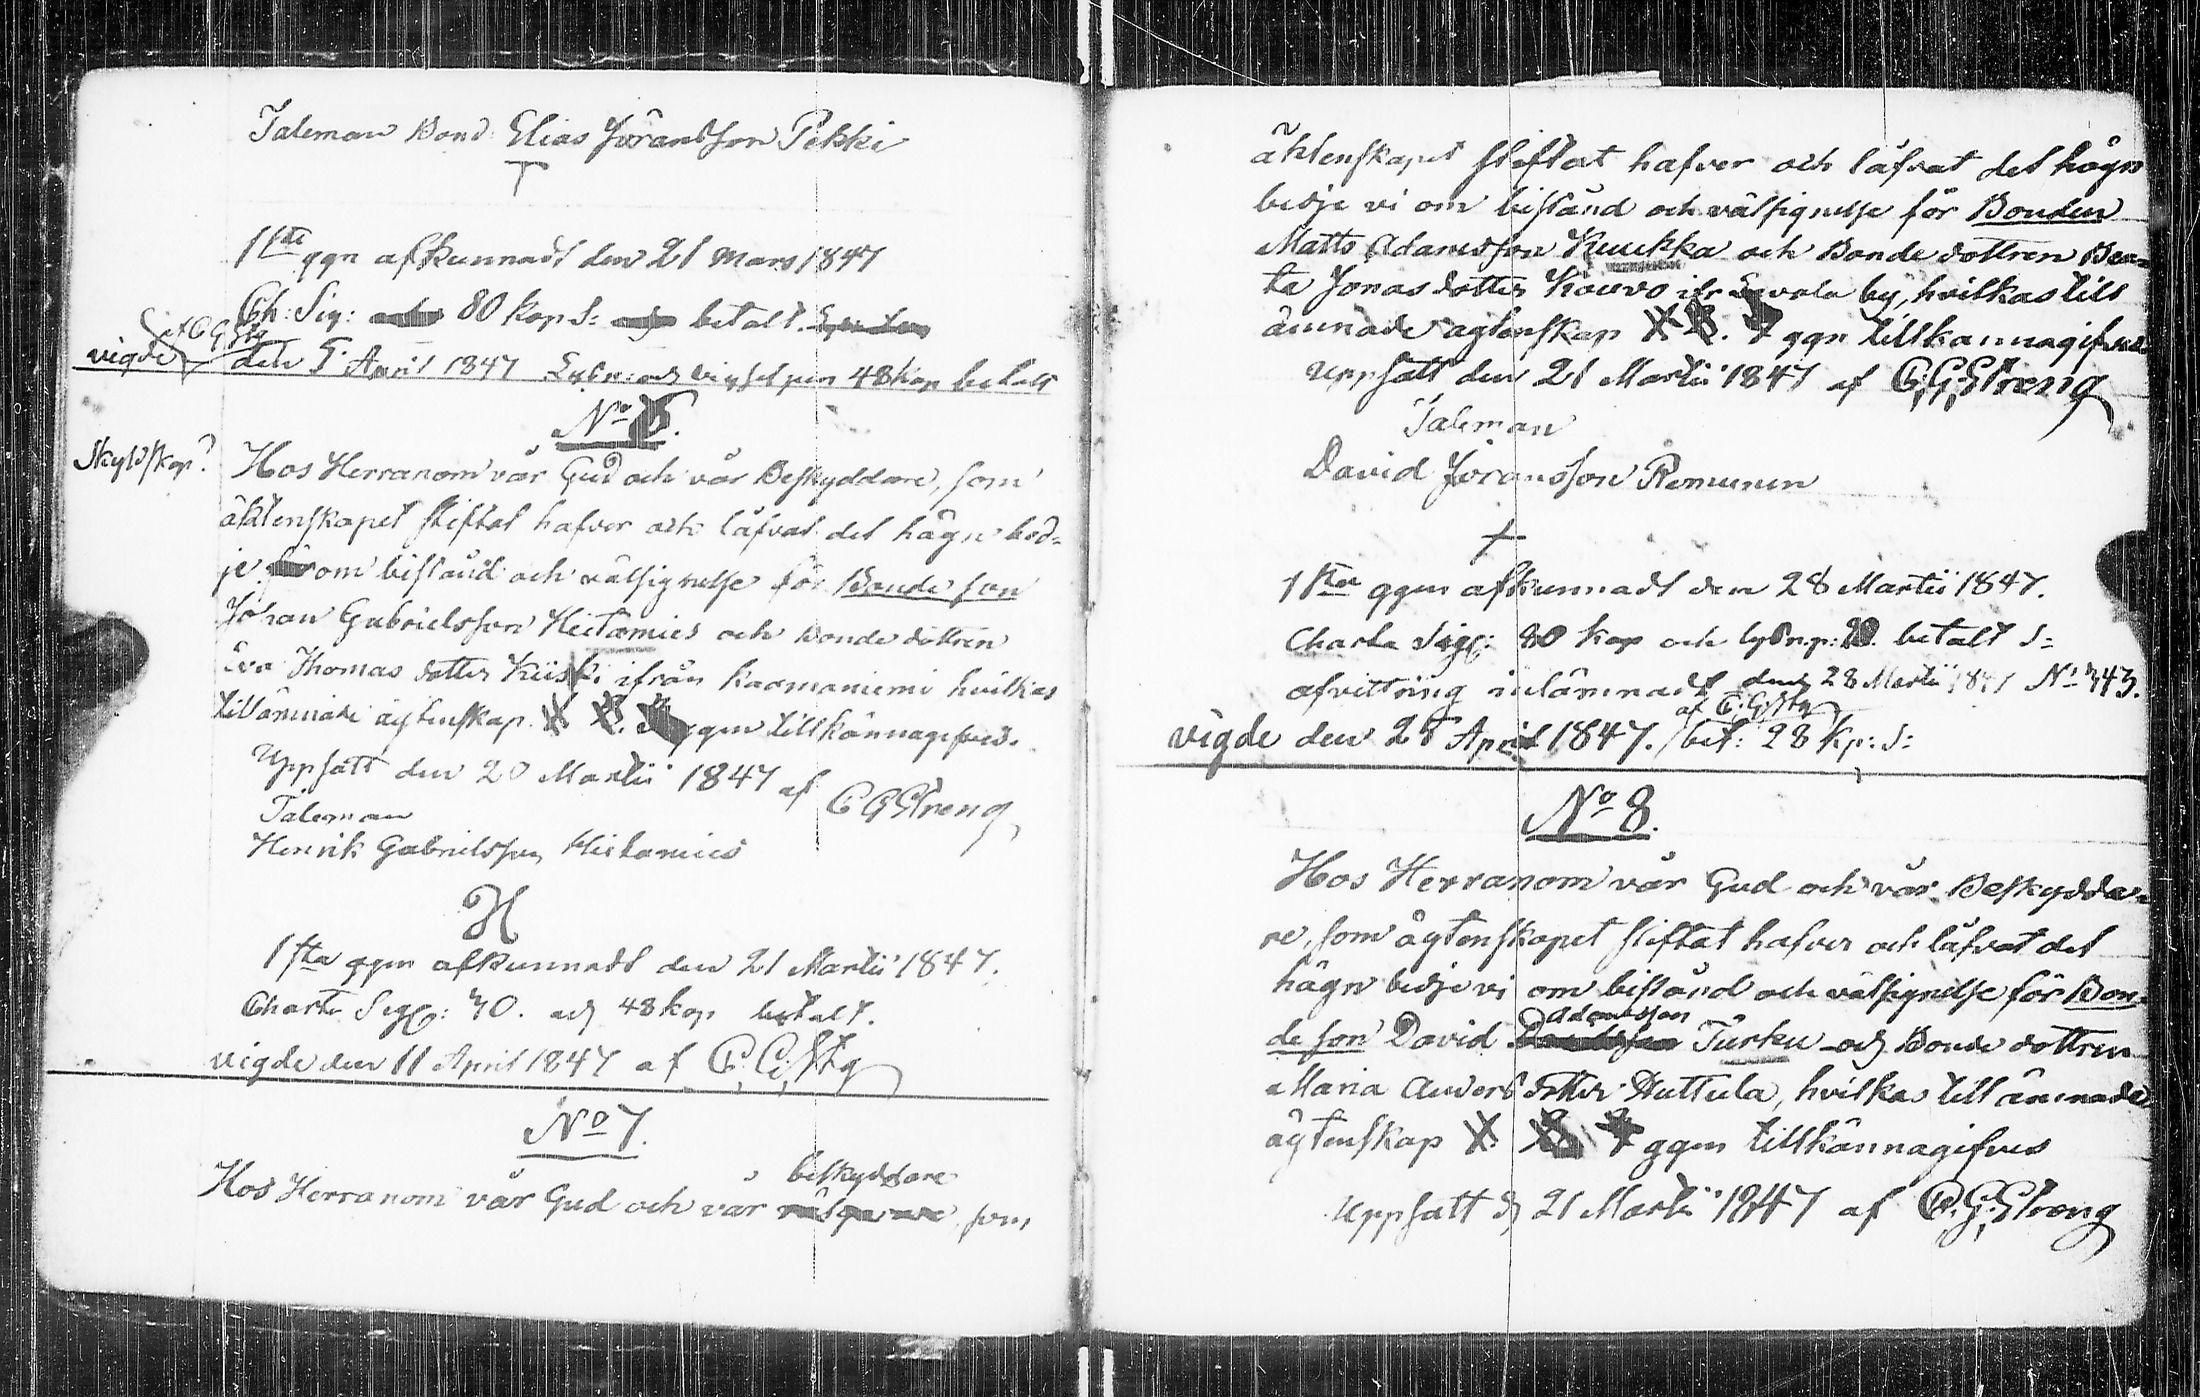 Taleman Bond: Elias Jöransson Pekki
T
1sta ggn afkunnadt den 21 Mars 1847
Ch: Sig: 80 kop S: betalt
af C G Stg
vigde den 5 April 1847 Lysn: och vigselpen 48 kop betalt
No 6.
Skyldskap?
Hos Herranom vår Gud och vår Beskyddare, som
äktenskapet stiftat hafver och låfvat det hägn bed=
je om bistånd och välsignelse för Bonde son
Johan Gabrielsson Hietamies och Bonde dottren
Eva Thomas dotter Kiiski ifrån Kaamaniemi hvilkas
tillämnade ägtenskap ggn tillkännagifves.
Uppsatt den 20 Martii 1847 af C G Streng
Taleman
Henrik Gabrielsson Hietamies
H
1sta ggn afkunnadt den 21 Martii 1847.
Charte Sigl: 40. och 48 kop betalt.
vigde den 11 April 1847 af C. G. Stg
No 7.
beskyddare
Hos Herranom vår Gud och vår som
äktenskapet stiftat hafver och låfvat det hägn
bedje vi om bistånd och välsignelse för Bonden
Matts Adamsson Kuukka och Bonde dottren Bea=
ta Jonas dotter Kouvo ifr by, hvilkas till
ämnade ägtenskap ggn tillkännagifves
Uppsatt den 21 Martii 1847 af C. G. Streng
Taleman
David Jöransson Remunen
+
1sta ggn afkunnadt den 28 Martii 1847.
Charta Sigl: 80 kop och lysn.p: 20. betalt S:
afvittring inlämnadt den 28 Martii 1847 No 743.
af C. G. Stg
vigde den 25 April 1847. bet: 28 Kp: S:
No 8.
Hos Herranom vår Gud och vår Beskydda=
re, som ägtenskapet stiftat hafver och låfvat det
hägn bedje vi om bistånd och välsignelse för Bon=
Adamsson
de son David Turku och Bonde dottren
Maria Anders dotter Huttula, hvilkas tillämnade
ägtenskap ggn tillkännagifves
Uppsatt d 21 Martii 1847 af C. G. Streng